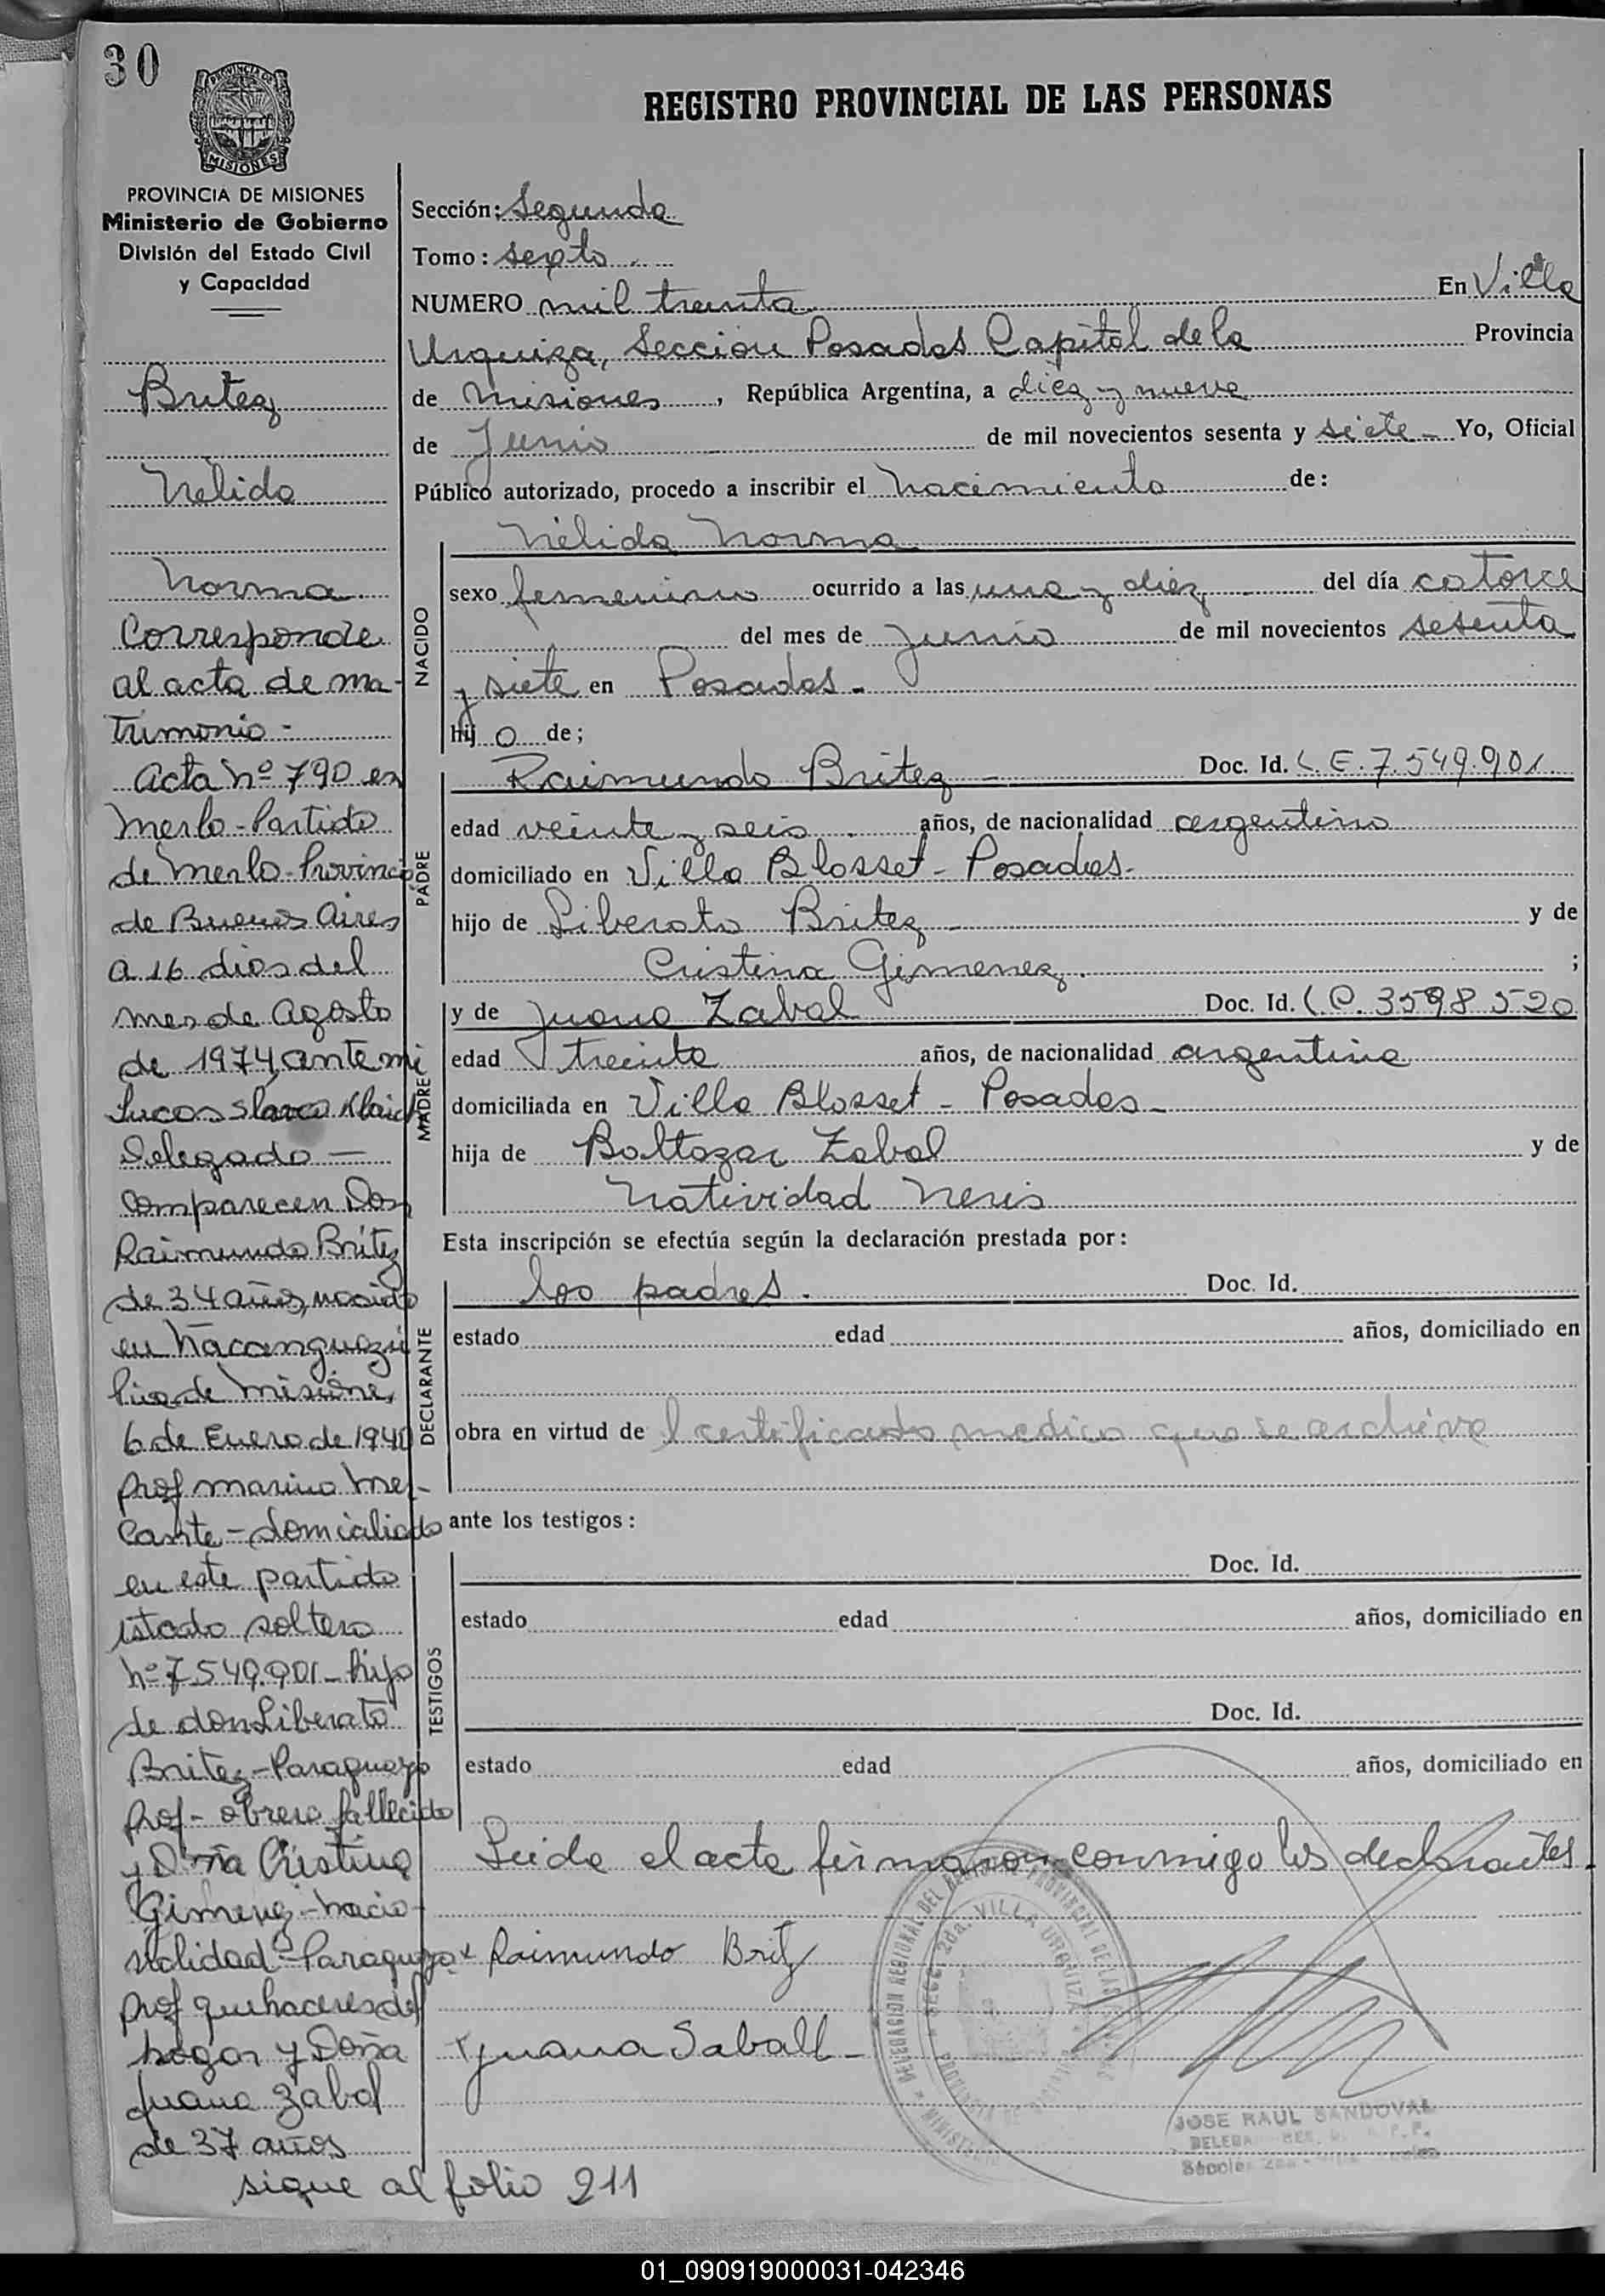 30
PROVINCIA DE
MISIONES
REGISTRO PROVINCIAL DE LAS PERSONAS
PROVINCIA DE MISIONES
Ministerio de Gobierno
División del Estado Civil
y Capacidad
Britez
Nélida
Norma
Corresponde
al acta de ma-
trimonio -
Acta Nº 790 en
Merlo - Partido
de Merlo - Provincia
de Buenos Aires
a 16 dias del
mes de Agosto
de 1974 ante mi
Lucas
Delegado —
Comparecen Don
Raimundo Britez
de 34 años, nacido
en Ñacanguazú
6 de Enero de 1940
prof marino mer-
cante - domiciliado
en este partido
estado soltero
nº 7.549.901 - hijo
de don Liberato
Britez - Paraguayo
prof - obrero fallecido
y Dña Cristina
Gimenez - nacio-
nalidad - Paraguaya
prof quehaceres del
hogar y Doña
Juana Zabal
de 37 años
sigue al folio 211
Sección: Segunda
Tomo: sexto
NUMERO mil treinta En Villa
Urquiza, Sección Posadas Capital de la Provincia
de Misiones, República Argentina, a diez y nueve
de Junio de mil novecientos sesenta y siete - Yo, Oficial
Público autorizado, procedo a inscribir el Nacimiento de:
NACIDO
Nélida Norma
sexo femenino ocurrido a las una y diez del día catorce
del mes de Junio de mil novecientos sesenta
y siete en Posadas -
hij o de;
PADRE
Raimundo Britez - Doc. Id. L.E. 7.549.901
edad veinte y seis años, de nacionalidad argentino
domiciliado en Villa Blosset - Posadas -
hijo de Liberato Britez - y de
Cristina Gimenez. ;
MADRE
y de Juana Zabal Doc. Id. L.C. 3598520
edad treinta años, de nacionalidad argentina
domiciliada en Villa Blosset - Posadas -
hija de Baltazar Zabal y de
Natividad Neris
Esta inscripción se efectúa según la declaración prestada por:
DECLARANTE
los padres. Doc. Id.
estado edad años, domiciliado en
obra en virtud de l certificado medico que se archiva
ante los testigos:
TESTIGOS
Doc. Id.
estado edad años, domiciliado en
Doc. Id.
estado edad años, domiciliado en
Leida el acta firmaron conmigo los declarantes.
x Raimundo Britz
x Juana Saball -
DELEGACION REGIONAL DEL REGISTRO PROVINCIAL DE LAS
SECC. 2da. VILLA URQUIZA
PROVINCIA DE
JOSE RAUL SANDOVAL
01_090919000031-042346